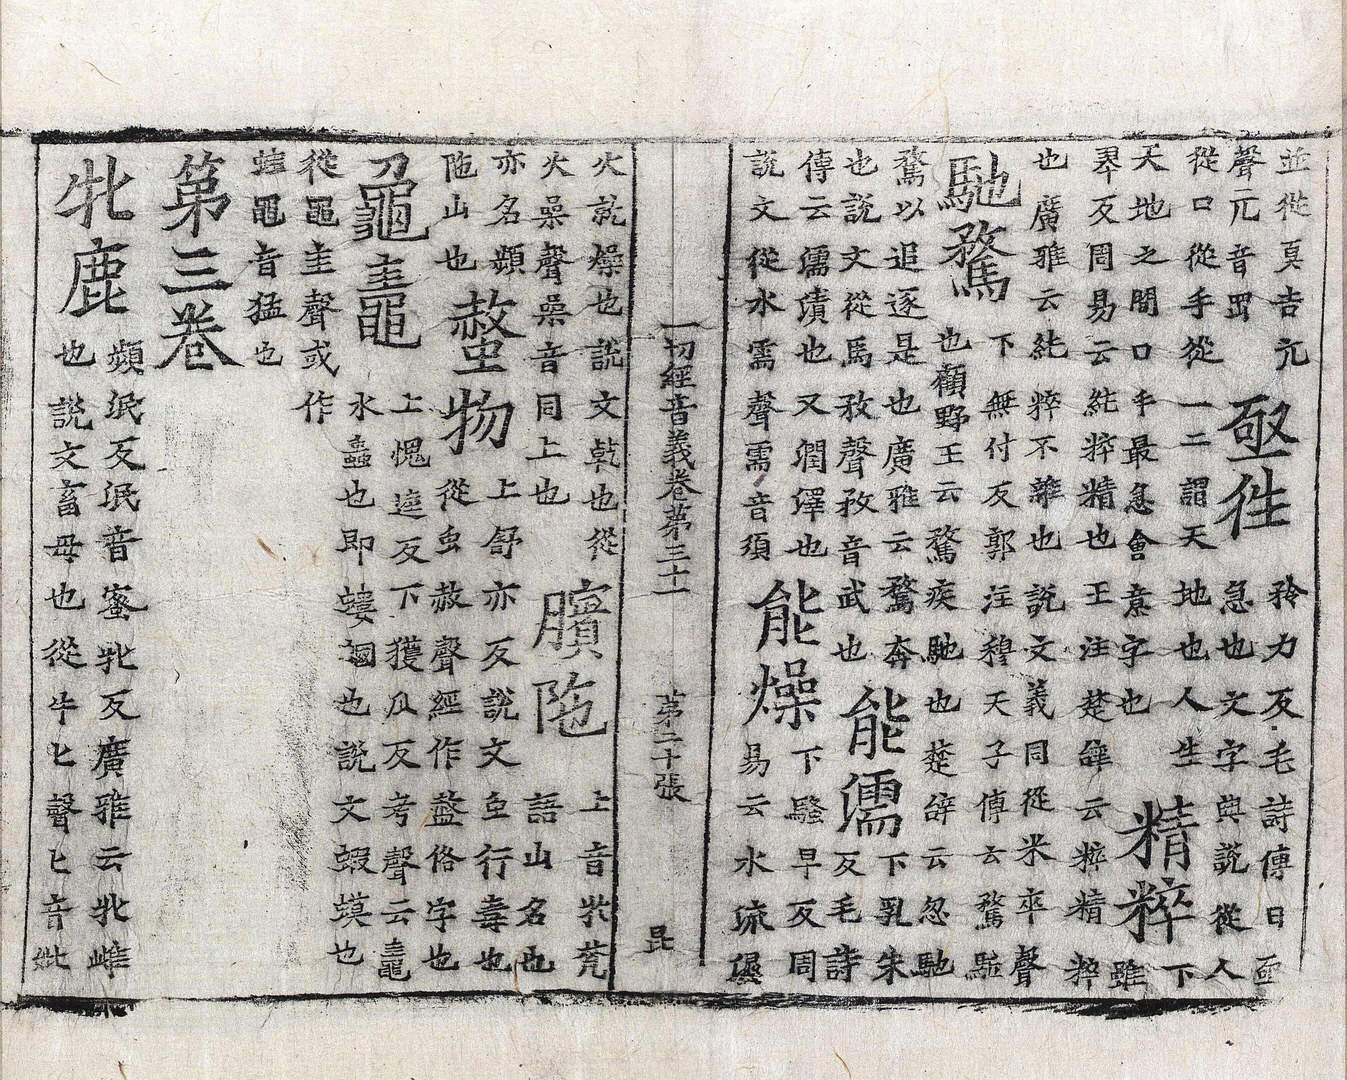 並從頁吉亢
聲亢音罡
亟徃
矜力反毛詩傳曰亟
急也文字與說從人
從口從手從一二謂天地也人生
天地之間口手最急會意字也
精粹
下
雖
翠反周易云純粹精也王注楚辭云粹精粹
也廣雅云純粹不雜也說文義同從米卒聲
馳騖
下無付反郭注穆天子傳云騖馳
也顧野王云騖疾馳也楚辭云忽馳
騖以追逐是也廣雅云騖奔
也說文從馬敄聲敄音武也
能濡
下乳朱
反毛詩
傳云濡漬也又潤澤也
說文從水需聲需音須
能燥
下騷早反周
易云水流濕
一切經音義卷第三十一 第二十張 昆
火就燥也說文乾也從
火喿聲喿音同上也
臏陁
上音牝梵
語山名也
亦名頻
陁山也
螫物
上舒亦反說文虫行毒也
從虫赦聲經作蠚俗字也
龜鼃
上愧逵反下獲瓜反考聲云鼃
水蟲也即螻蟈也說文蝦蟆也
從黽圭聲或作
蛙黽音猛也
第三卷
牝鹿
頻泯反泯音蜜牝反廣雅云牝雌
也說文畜母也從牛匕聲匕音妣